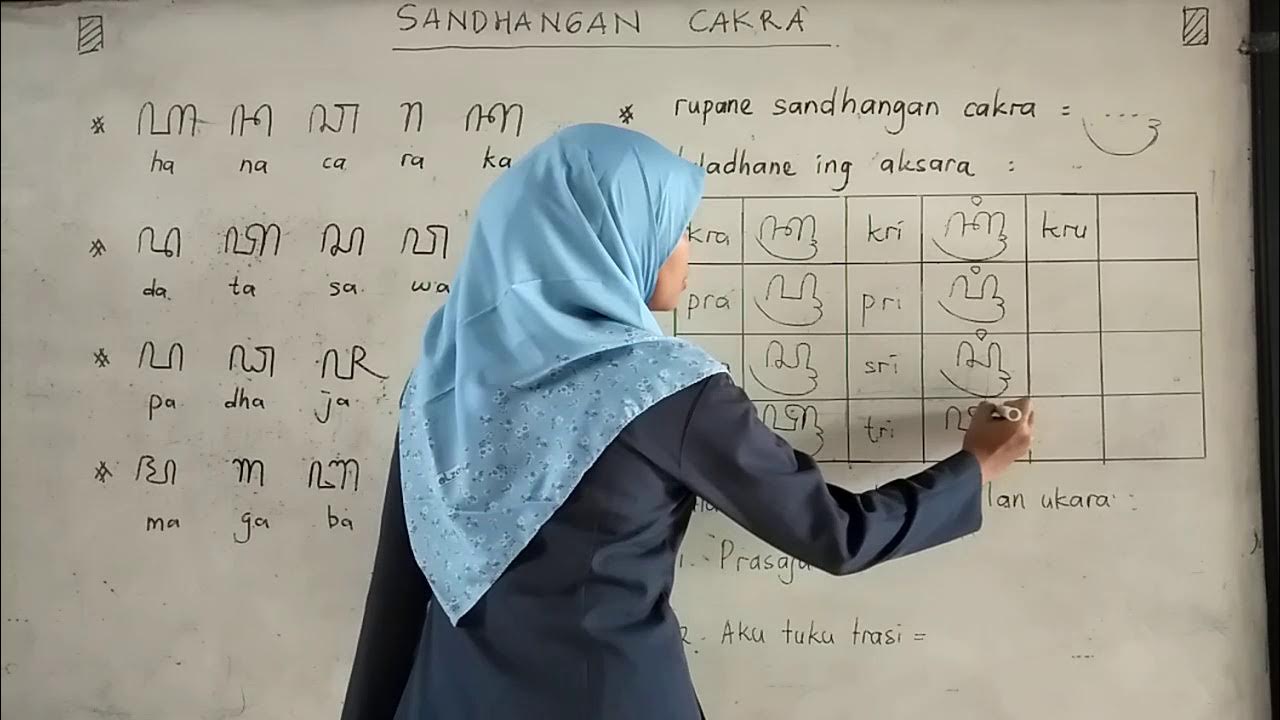 SANDHANGAN CAKRA
ꦲ ꦤ ꦕ ꦫ ꦏ
ha na ca ra ka
ꦢ ꦠ ꦱ ꦮ
da ta sa wa
ꦥ ꦝ ꦗ
pa dha ja
ꦩ ꦒ ꦧ
ma ga ba
rupane sandhangan cakra = ....ꦿ
ing aksara :
kra ꦏꦿ kri ꦏꦿꦶ kru
pra ꦥꦿ pri ꦥꦿꦶ
ꦱꦿ sri ꦱꦿꦶ
ꦠꦿ tri ꦠ
lan ukara :
1. Prasaja
2. Aku tuku trasi =